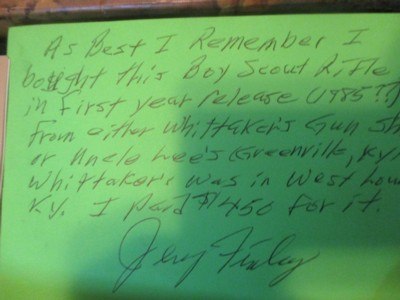 As Best I Remember I
bought this Boy Scout Rifle
in first year release (1985??)
from either Whittaker's Gun Sh
or Uncle Lee's (Greenville, Ky)
Whittaker's was in West Lou
Ky. I paid $450 for it.
Jerry Finley